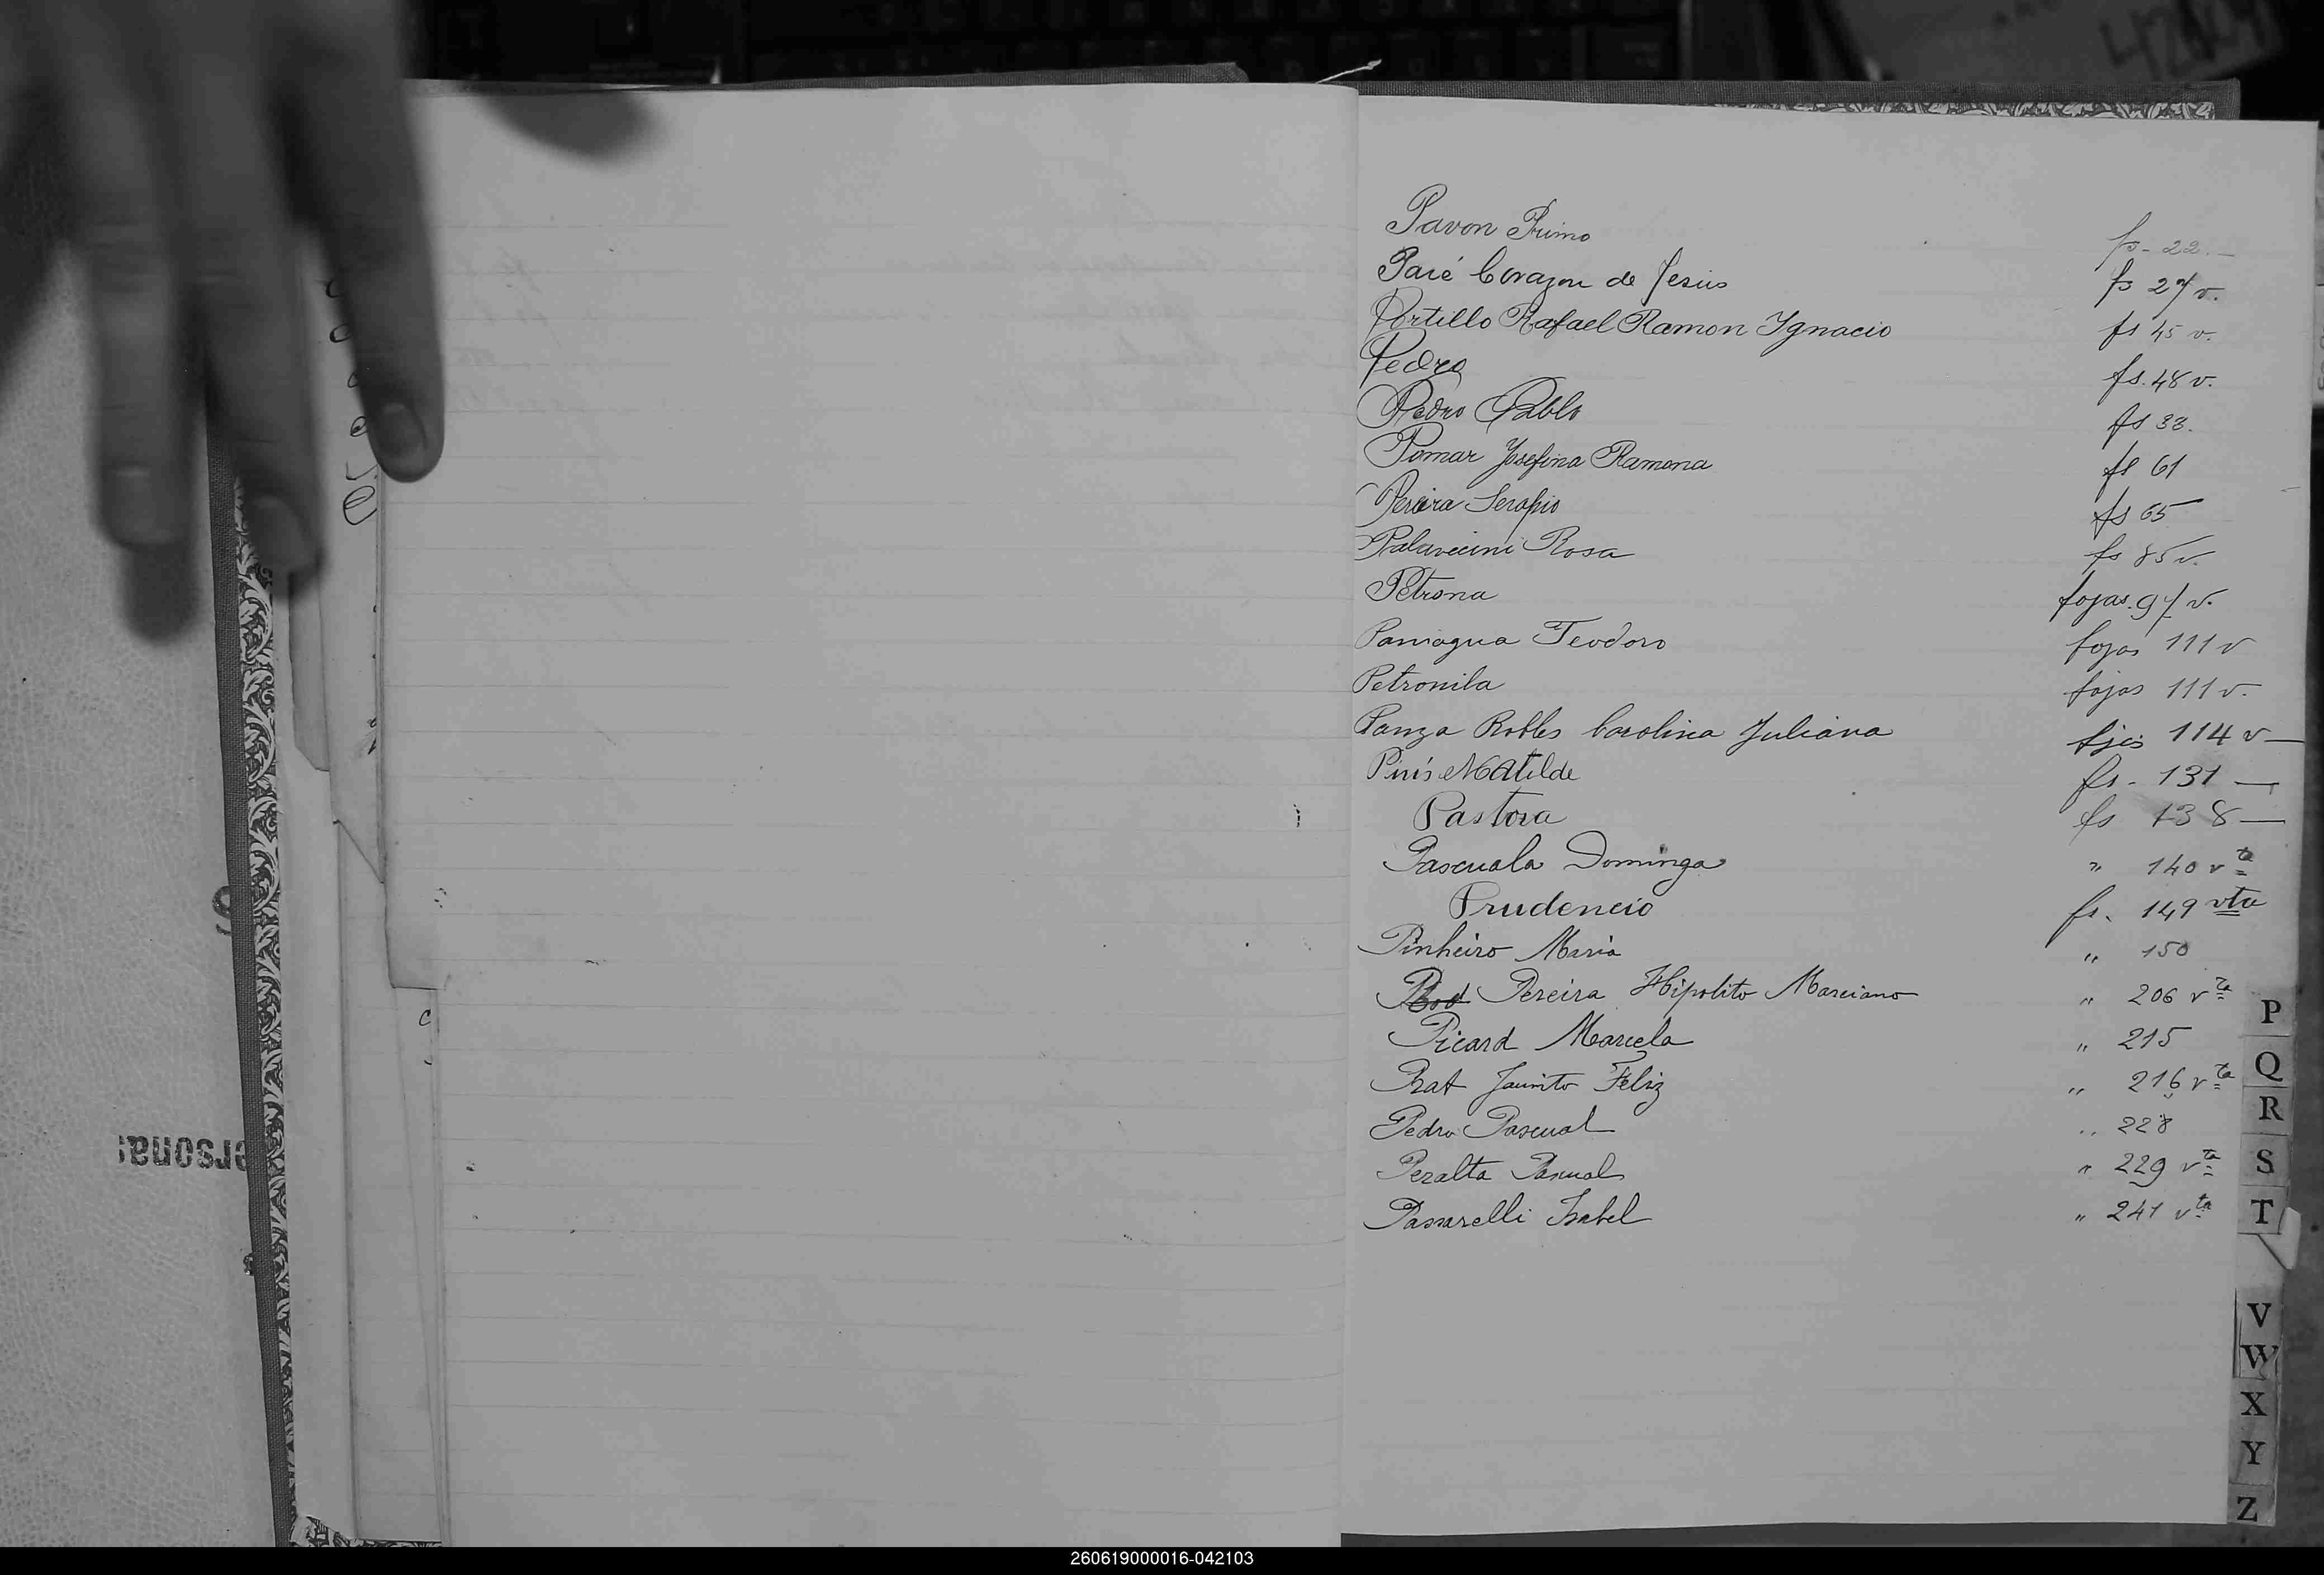 Pavon Primo fs - 22. —
Paré Corazon de Jesús fs 27 v.
Portillo Rafael Ramon Ygnacio fs 45 v.
Pedro fs. 48 v.
Pedro Pablo fs 38.
Pomar Josefina Ramona fs 61
Pereira Serapio fs 65
Palavecini Rosa fs 85 v.
Petrona fojas. 97 v.
Paniagua Teodoro fojas 111 v
Petronila fojas 111 v.
Panza Robles Carolina Juliana fjas 114 v —
Pinís Matilde fs - 131 —
Pastora fs 138 —
Pascuala Dominga " 140 vta
Prudencio fs. 149 vta
Pinheiro Maria " 150
Pereira Hipolito Marciano " 206 vta
Picard Marcela " 215
Prat Jacinto Feliz " 216 vta
Pedro Pascual " 228
Peralta Pascual " 229 vta
Passarelli Isabel " 241 vta
P
Q
R
S
T
V
W
X
Y
Z
260619000016-042103